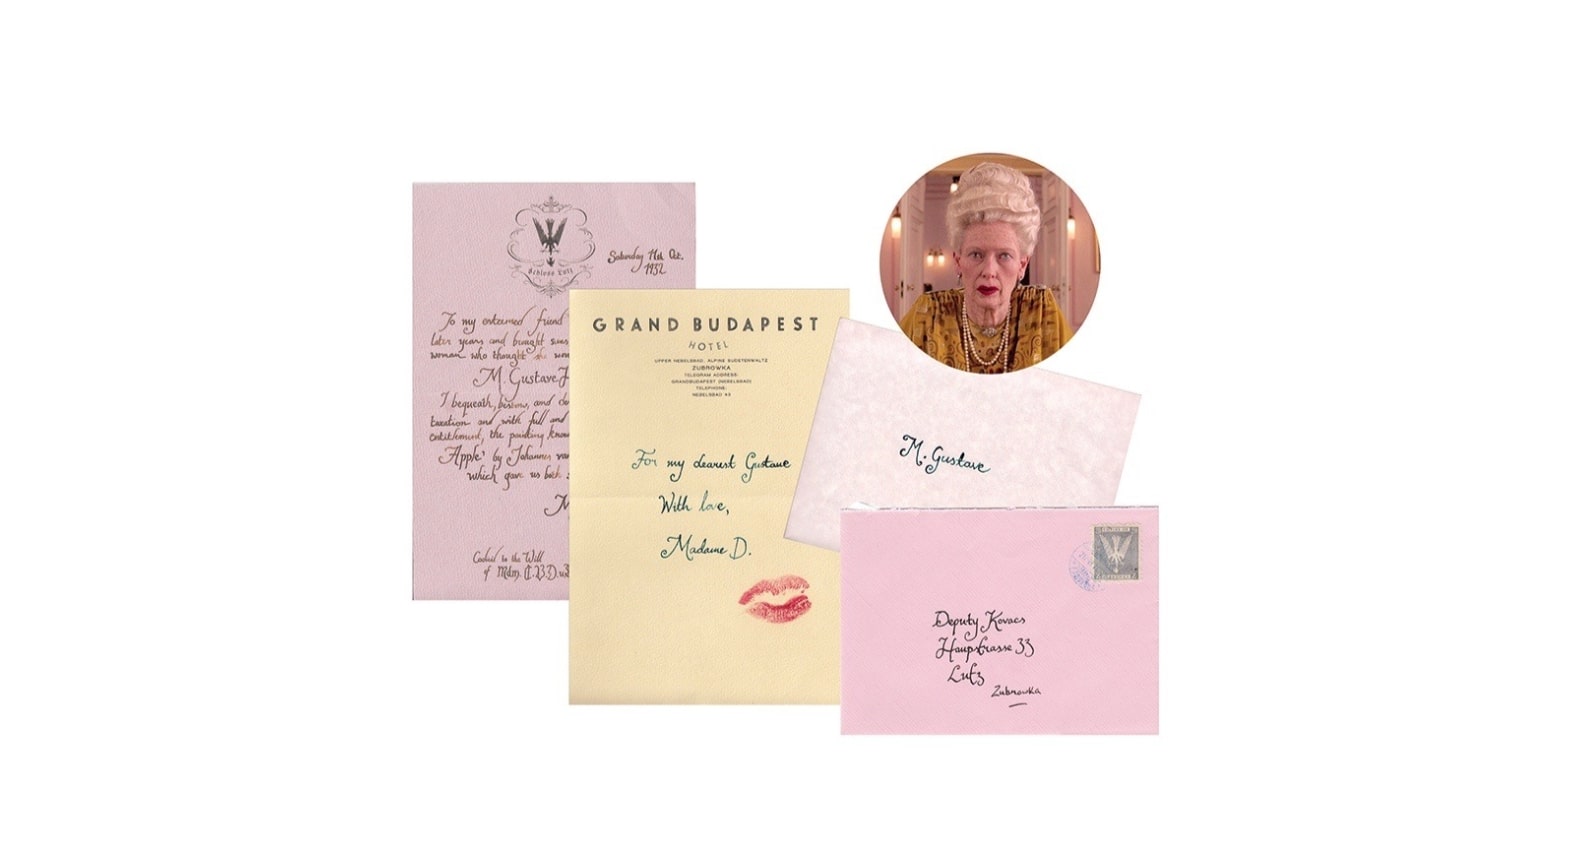 Schloss Lutz
Saturday 11th Oct.
1932
To my esteemed friend
later years and brought
woman who thought she
M. Gustave
I bequeath, bestow, and
taxation and with full and
entitlement, the painting
Apple' by Johannes van
which gave us both
M
Codicil to the Will
of Mdm.
GRAND BUDAPEST
HOTEL
UPPER NEBELSBAD, ALPINE SUDETENWALTZ
ZUBROWKA
TELEGRAM ADDRESS:
GRANDBUDAPEST (NEBELSBAD)
TELEPHONE:
NEBELSBAD 43
For my dearest Gustave
With love,
Madame D.
M. Gustave
Deputy Kovacs
Haupstrasse 33
Lutz
Zubrowka